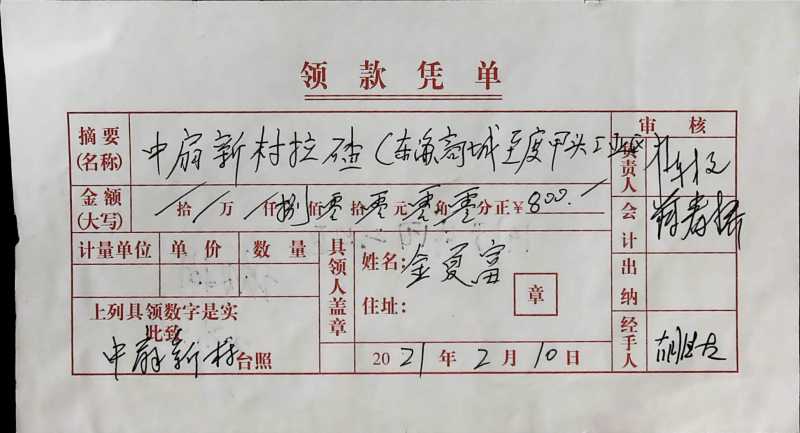 领款凭单
摘要(名称) 中扇新村拉碴(东海商城至度甲头工业区 审核
金额(大写) 拾 万 仟捌佰零拾零元零角零分正¥800.
负责人
会计
计量单位 单价 数量
具领人盖章 姓名:金夏富
住址: 章
出纳
上列具领数字是实
此致
中扇新村台照
2021年2月10日
经手人